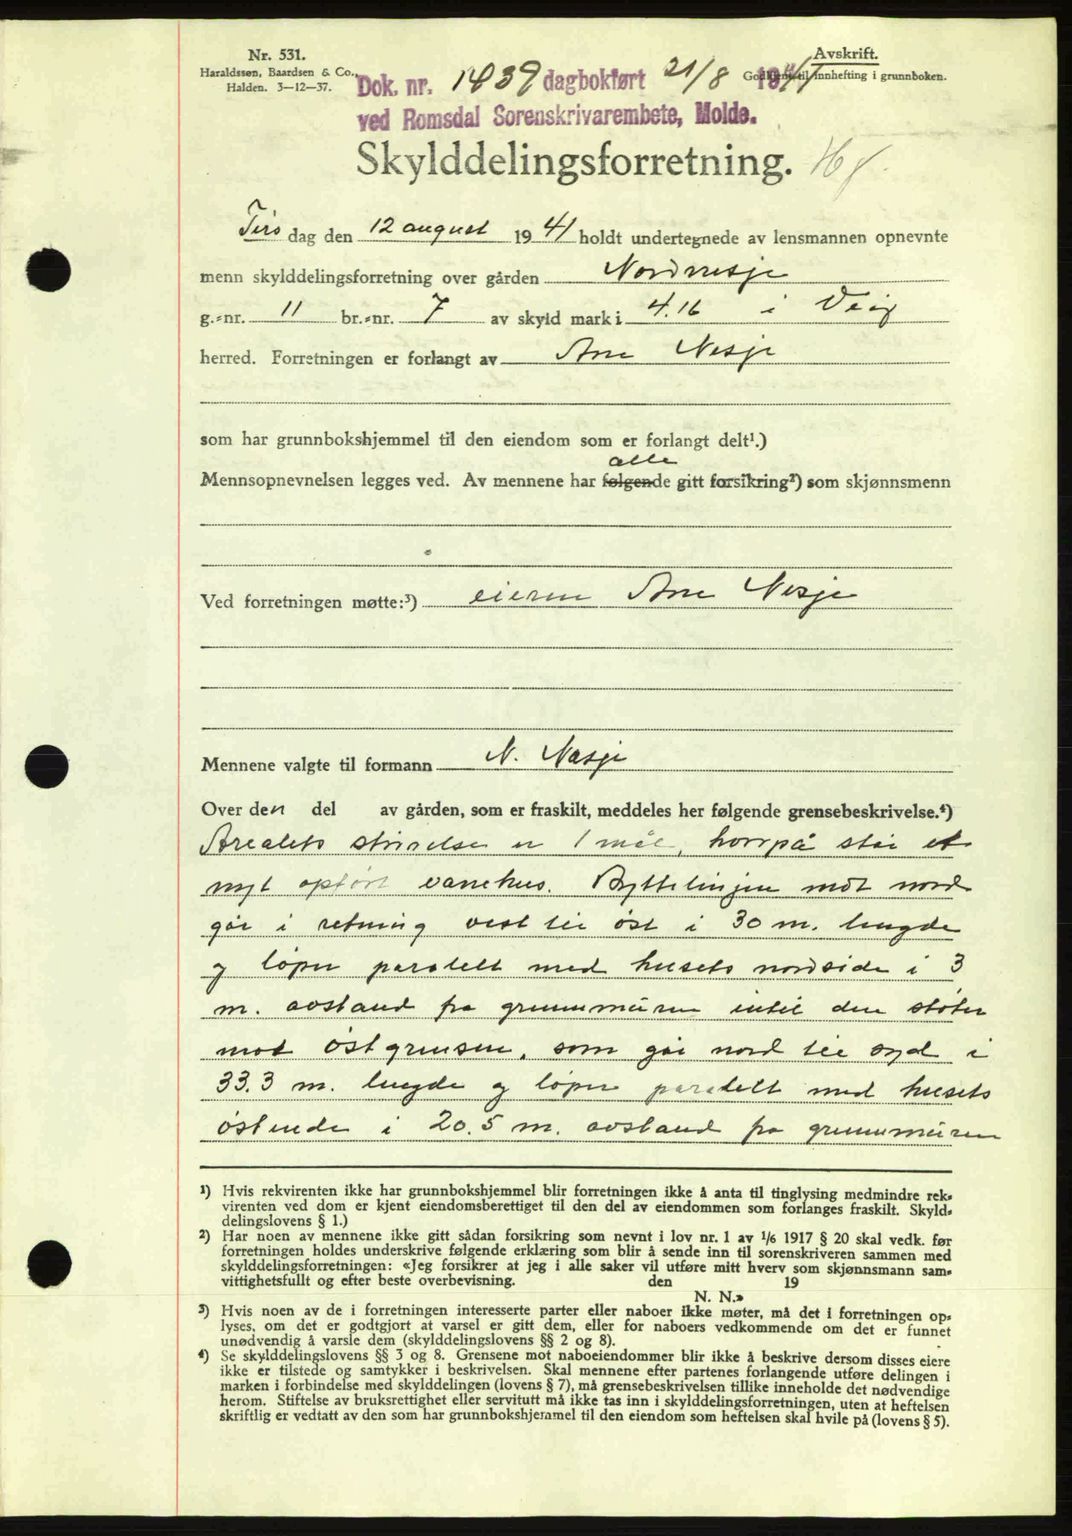 Nr. 531.
Haraldssøn, Baardsen & Co.,
Halden. 3—12—37.
Avskrift.
Godkjent til innhefting i grunnboken.
Dok. nr. 1439 dagbokført 21/8 1941
ved Romsdal Sorenskrivarembete, Molde.
Skylddelingsforretning.
Tirs dag den 12 august 1941 holdt undertegnede av lensmannen opnevnte
menn skylddelingsforretning over gården Nordnesje
g.-nr. 11 br.-nr. 7 av skyld mark i 4.16 i Veøy
herred. Forretningen er forlangt av Ane Nesje
som har grunnbokshjemmel til den eiendom som er forlangt delt¹.)
alle
Mennsopnevnelsen legges ved. Av mennene har følgende gitt forsikring²) som skjønnsmenn
Ved forretningen møtte:³) eieren Ane Nesje
Mennene valgte til formann N. Næsje
Over den del av gården, som er fraskilt, meddeles her følgende grensebeskrivelse.⁴)
Arealets størrelse er 1 mål, hvorpå står et
nyt opført vånehus. Byttelinjen mot nord
går i retning vest til øst i 30 m. lengde
og løper paralelt med husets nordside i 3
m. avstand fra grunnmuren intil den støter
mot østgrensen, som går nord til syd i
33.3 m. lengde og løper paralelt med husets
østende i 20.5 m. avstand fra grunnmuren
¹) Hvis rekvirenten ikke har grunnbokshjemmel blir forretningen ikke å anta til tinglysing medmindre rek-
virenten ved dom er kjent eiendomsberettiget til den del av eiendommen som forlanges fraskilt. Skyld-
delingslovens § 1.)
²) Har noen av mennene ikke gitt sådan forsikring som nevnt i lov nr. 1 av 1/6 1917 § 20 skal vedk. før
forretningen holdes underskrive følgende erklæring som blir å sende inn til sorenskriveren sammen med
skylddelingsforretningen: «Jeg forsikrer at jeg i alle saker vil utføre mitt hverv som skjønnsmann sam-
vittighetsfullt og efter beste overbevisning. den 19
N. N.»
³) Hvis noen av de i forretningen interesserte parter eller naboer ikke møter, må det i forretningen op-
lyses, om det er godtgjort at varsel er gitt dem, eller for naboers vedkommende om det er funnet
unødvendig å varsle dem (skylddelingslovens §§ 2 og 8).
⁴) Se skylddelingslovens §§ 3 og 8. Grensene mot naboeiendommer blir ikke å beskrive dersom disses eiere
ikke er tilstede og samtykker i beskrivelsen. Skal mennene efter partenes forlangende utføre delingen i
marken i forbindelse med skylddelingen (lovens § 7), må grensebeskrivelsen tillike inneholde det nødvendige
herom. Stiftelse av bruksrettighet eller servitutt må ikke tas inn i skylddelingsforretningen, uten at heftelsen
skriftlig er vedtatt av den som har grunnbokshjemmel til den eiendom som heftelsen skal hvile på (lovens § 5).